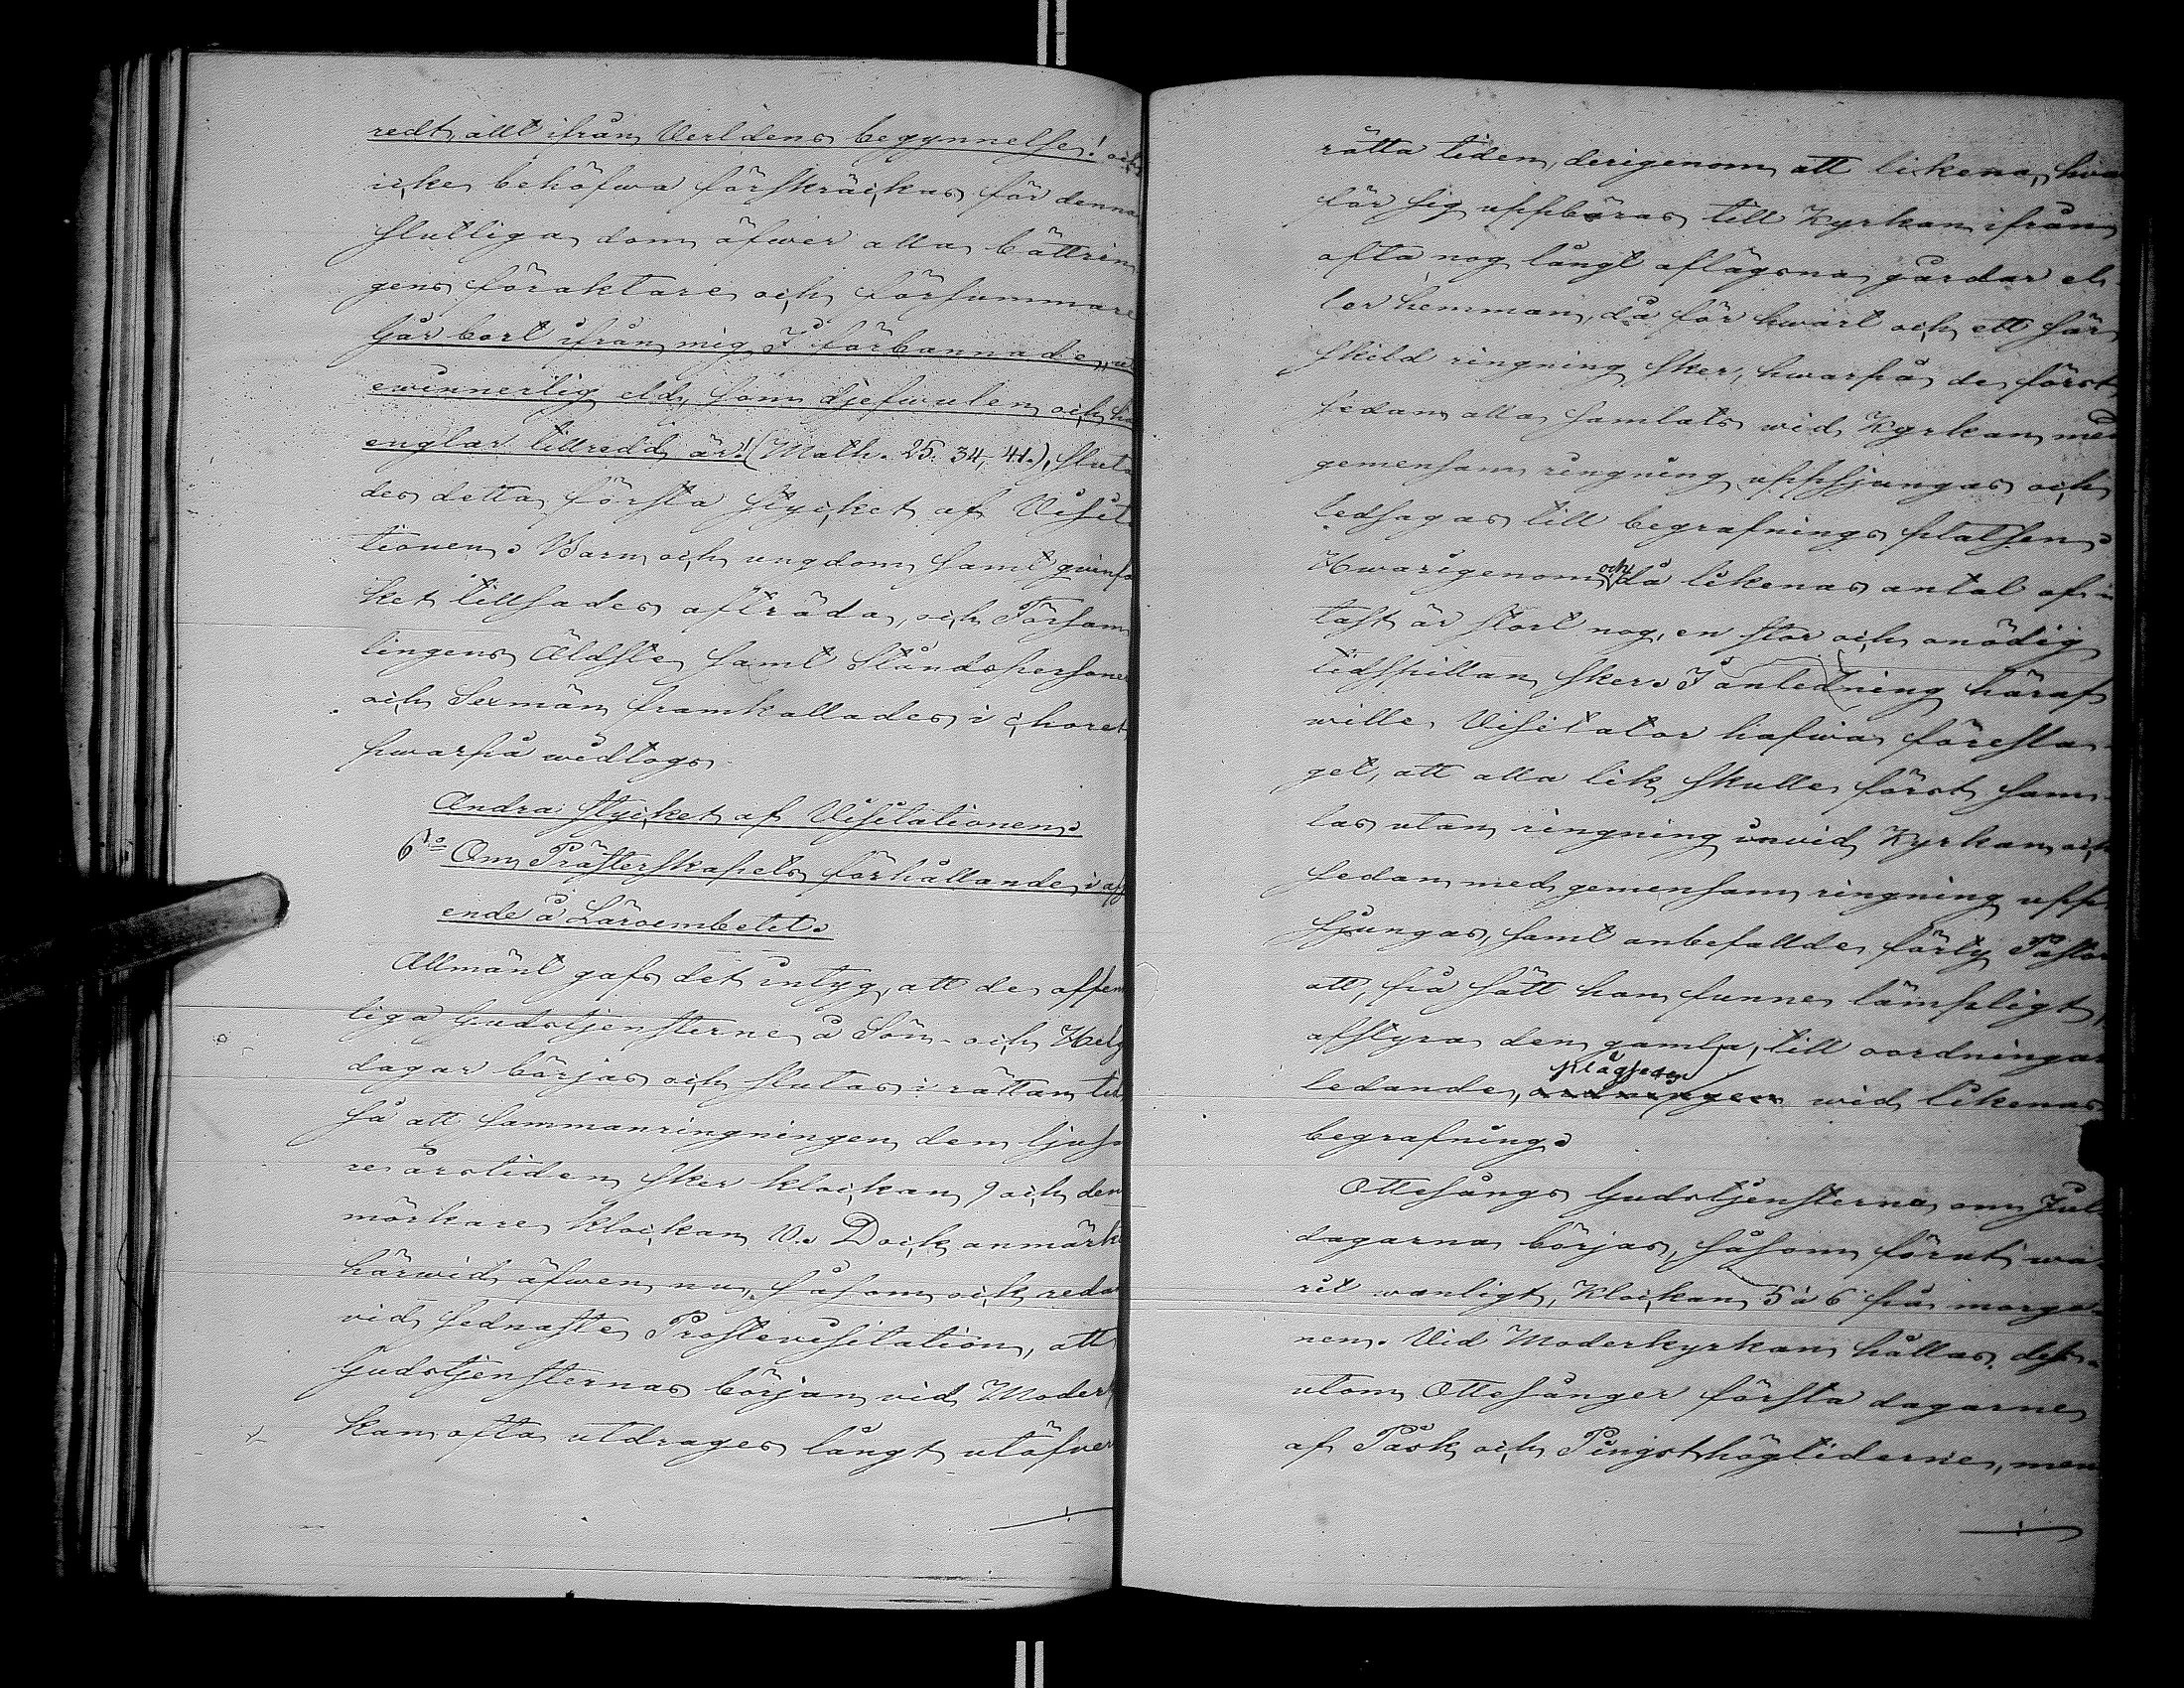 redt allt ifrån Verldens begynnelse! och
icke behöfwa förskräckas för denna
slutliga dom öfwer alla bättrin
gens föraktare och försummare
Går bort ifrån mig I förbannade, u
ewinnerlig eld, som djefwulen och ha
englar tillredd är! (Math. 25. 34, 41.), sluta
des detta första stycket af Visit
tionen. Barn och ungdom samt qvinfo
ket tillsades afträda, och Försam
lingens Äldste samt Ståndspersone
och Sexmän framkallades i choret
hwarpå widtogs
Andra stycket af Visitationen.
6:o Om Prästerskapets förhållande i afs
ende å Läroembetet.
Allmänt gafs det intyg, att de offen
liga Gudstjensterne å Sön- och Helg
dagar börjas och slutas i rättan tid
så att sammanringningen den ljusa
re årstiden sker klockan 9 och den
mörkare klockan 10. Dock anmärk
härwid äfwen nu, såsom ock reda
vid sednaste Prostevisitation, att
Gudstjensternas början vid Moderk
kan ofta utdrages långt utöfver
rätta tiden, derigenom att likena, hva
för sig uppbäras till Kyrkan ifrån
ofta nog långt aflägsna gårdar el-
ler hemman, då för hwart och ett sär
skild ringning sker, hwarpå de först
sedan alla samlats wid Kyrkan med
gemensam ringning uppsjungas och
ledsagas till begrafnings platsen.
Hwarigenom och då likenas antal of-
tast är stort nog, en stor och onödig
tidspillan sker. I anledning häraf
wille Visitator hafwa föresla-
get, att alla lik skulle först sam-
las utan ringning invid Kyrkan och
sedan med gemensam ringning upp
sjungas, samt anbefallde förty Pastor
att, på sätt han funne lämpligt,
afstyra den gamla, till oordningar
ledande, klagseden wid likenas
begrafning.
Ottesångs Gudstjensterna om Jul-
dagarna börjas, såsom förut wa-
rit wanligt, klockan 5 à 6 på morgo-
nen. Vid Moderkyrkan hållas dess-
utom Ottesånger första dagarne
af Påsk och Pingsthögtiderne, men